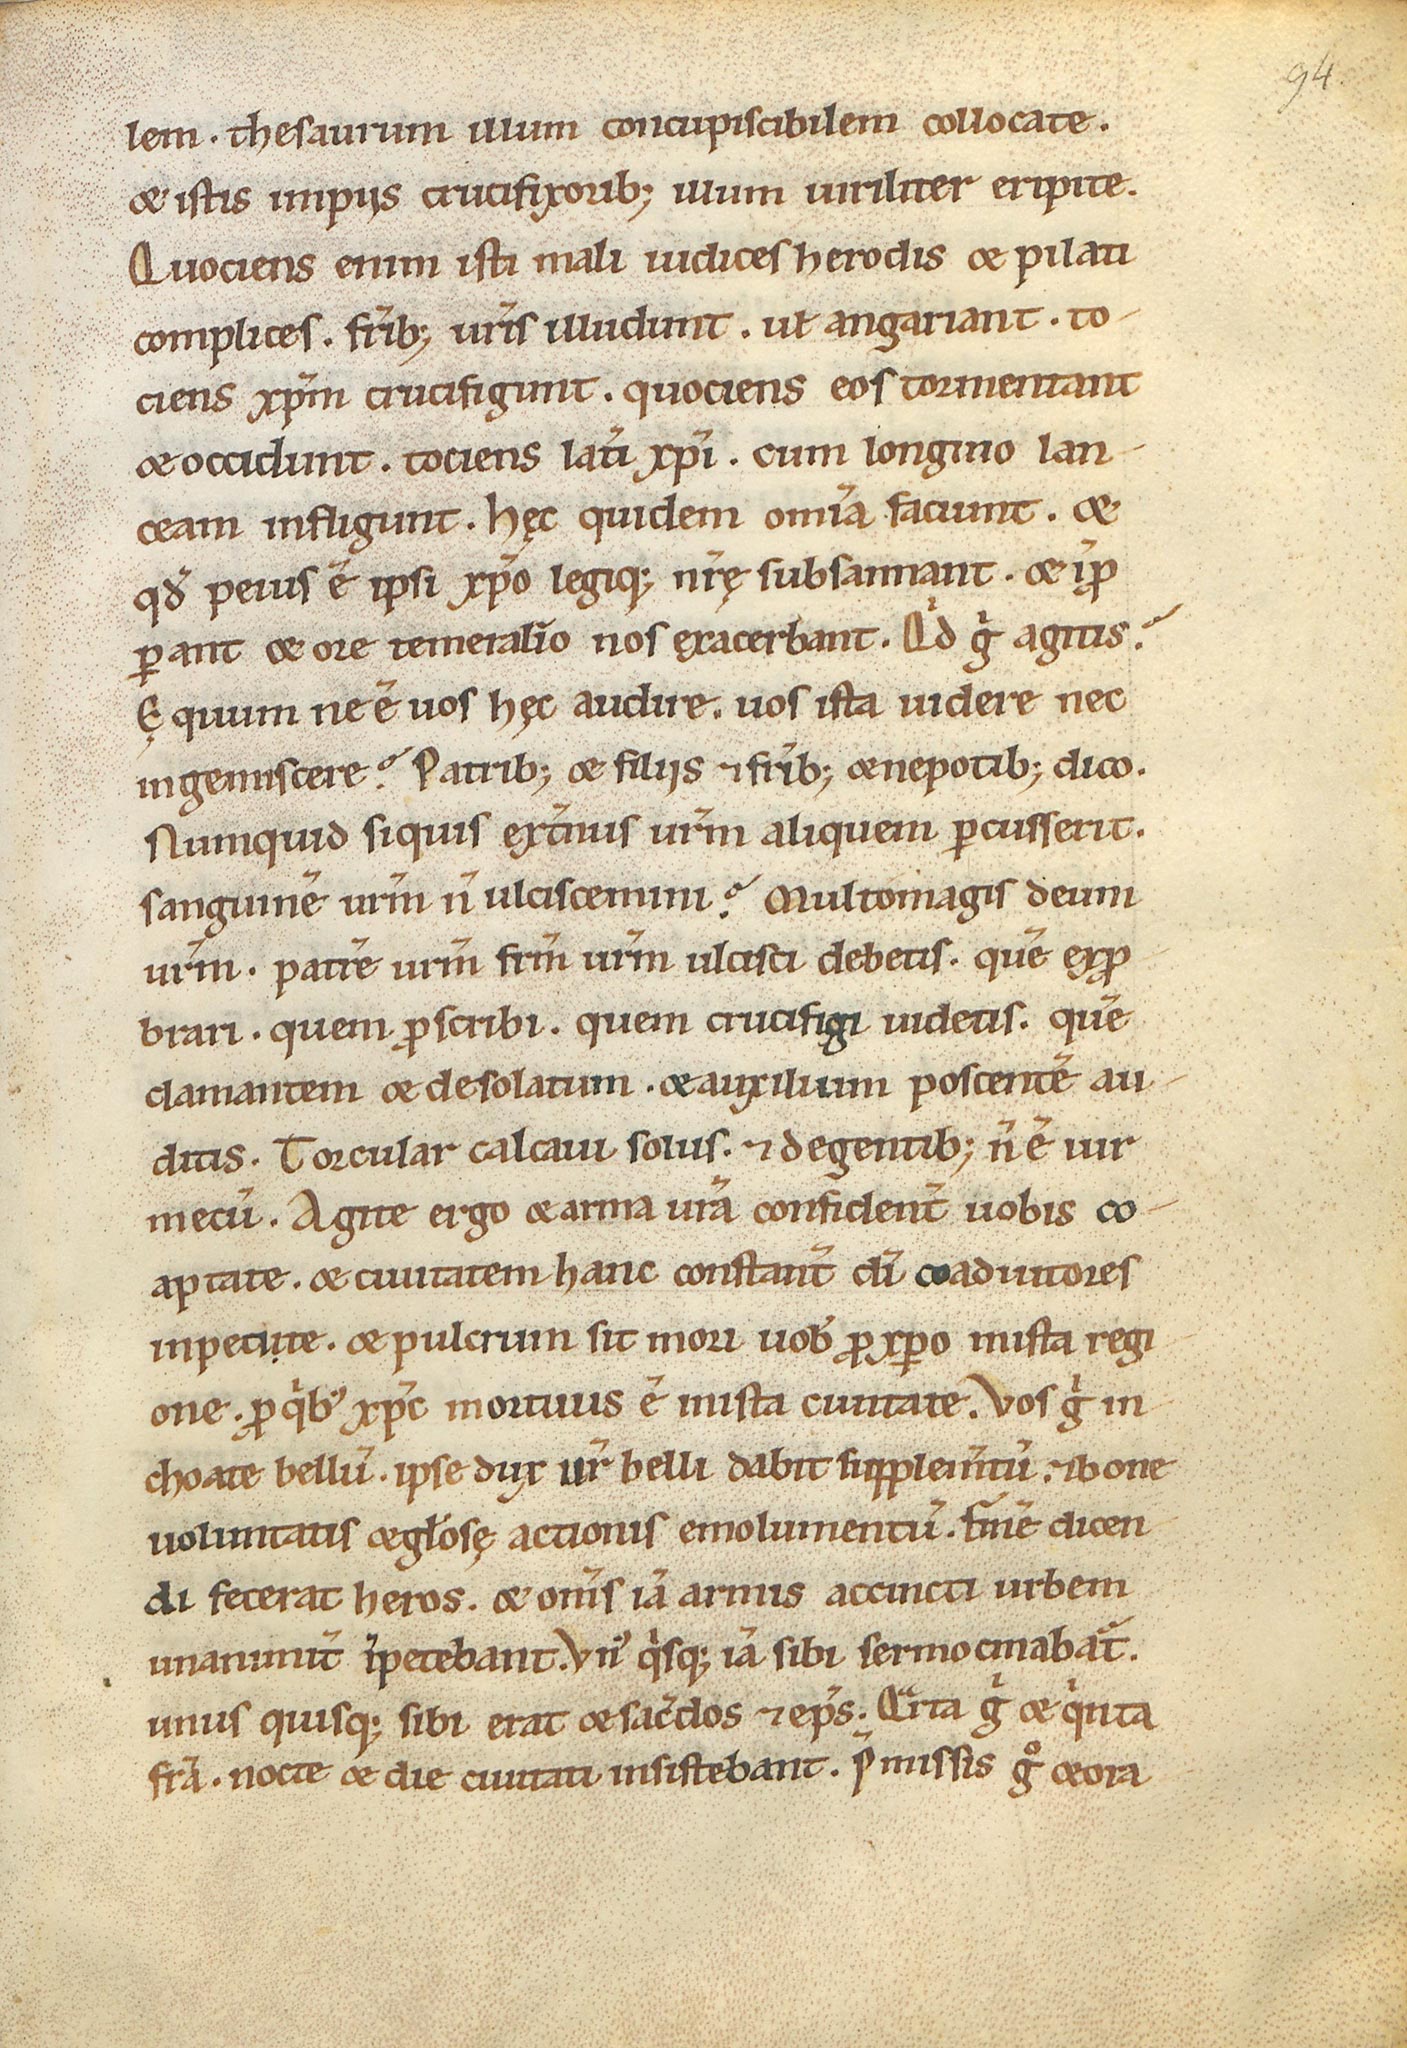 94.
lem . thesaurum illum concupiscibilem collocate .
& istis impiis crucifixorib; illum uiriliter eripite .
Quociens enim isti mali iudices herodis & pilati
complices . fr̄ib; ur̄is illudunt . ut̄ angariant . to-
ciens xp̄m crucifigunt . quociens eos tormentant
& occidunt . tociens lat̄i xp̄i . cum longino lan-
ceam infligunt . hęc quidem om̄ia faciunt . &
qđ peius ē ipsi xp̄o legiq; nr̄ę subsannant . & īꝓ
ꝑant & ore temerario nos exacerbant . Qͥd gͥ agitis ?
Ęquum ne ē uos hęc audire . uos ista uidere nec
ingemiscere ? Patrib; & filiis ⁊ fr̄ib; & nepotib; dico .
Numquid siquis ext̄nus ur̄m aliquem ꝑcusserit .
sanguinē ur̄m n̄ ulciscemini ? Multomagis deum
ur̄m . patrē ur̄m fr̄m ur̄m ulcisci debetis . quē exꝓ
brari . quem ꝓscribi . quem crucifigi uidetis . quē
clamantem & desolatum . & auxilium poscentē au-
ditis . Torcular calcaui solus . ⁊ degentib; n̄ ē uir
mecū . Agite ergo & arma ur̄a confident̄ uobis co-
aptate . & ciuitatem hanc constant̄ dī coadiutores
inpetite . & pulcrum sit mori uob̄ ꝓ xp̄o inista regi
one . ꝓ qͥbꝰ xp̄c mortuus ē inista ciuitate . Vos gͥ in-
choate bellū . ipse dux ur̄ belli dabit supplem̄tū . ⁊ bone
uoluntatis & gl̄osę actionis emolumentū . finē dicen
di fecerat heros . & om̄s iā armis accincti urbem
unanimit̄ īpetebant . Vnꝰ qͥsq; iā sibi sermocinabat᷑ .
unus quisq; sibi erat & sac̄dos ⁊ ep̄s . Qͣrta gͥ & qͥnta
fr̄a . nocte & die ciuitati insistebant . P̄missis gͦ & ora